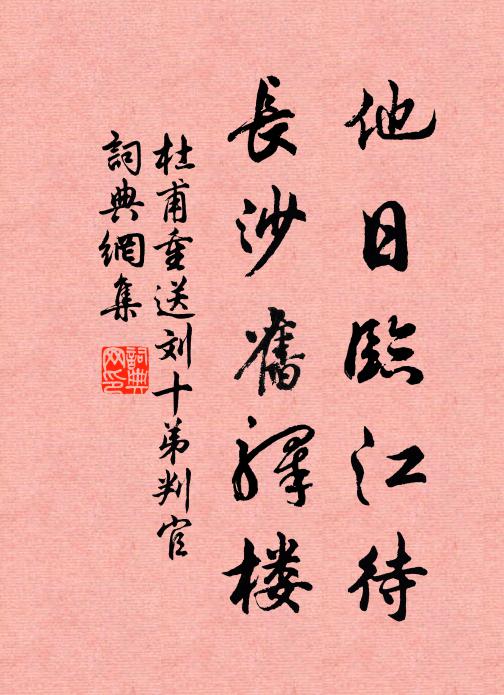 他日臨江待
長沙舊驛楼
杜甫重送刘十弟判官
詞典網集
詞典網印